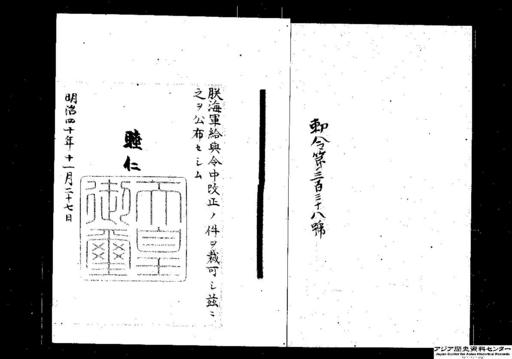 勅令第三百三十八號
朕海軍給與令中改正ノ件ヲ裁可シ茲ニ
之ヲ公布セシム
睦仁
天皇
御璽
明治四十年十一月二十七日
アジア歴史資料センター
Japan Center for Asian Historical Records